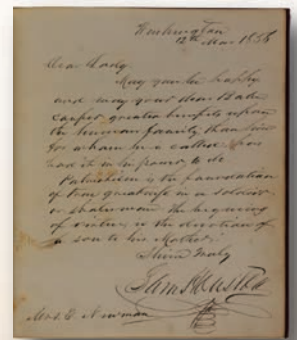 Washington
12th Mar 1856
Dear Lady,
May you be happy
and may your dear
confer greater benefits upon
the human family than
for whom he is called, have
had it in his power to do
Patriotism is the foundation
of true greatness in a soldier
or statesman. The beginning
of virtue, is the devotion of
a son to his Mother.
Thine truly
Sam Houston
Mrs. E. Newman